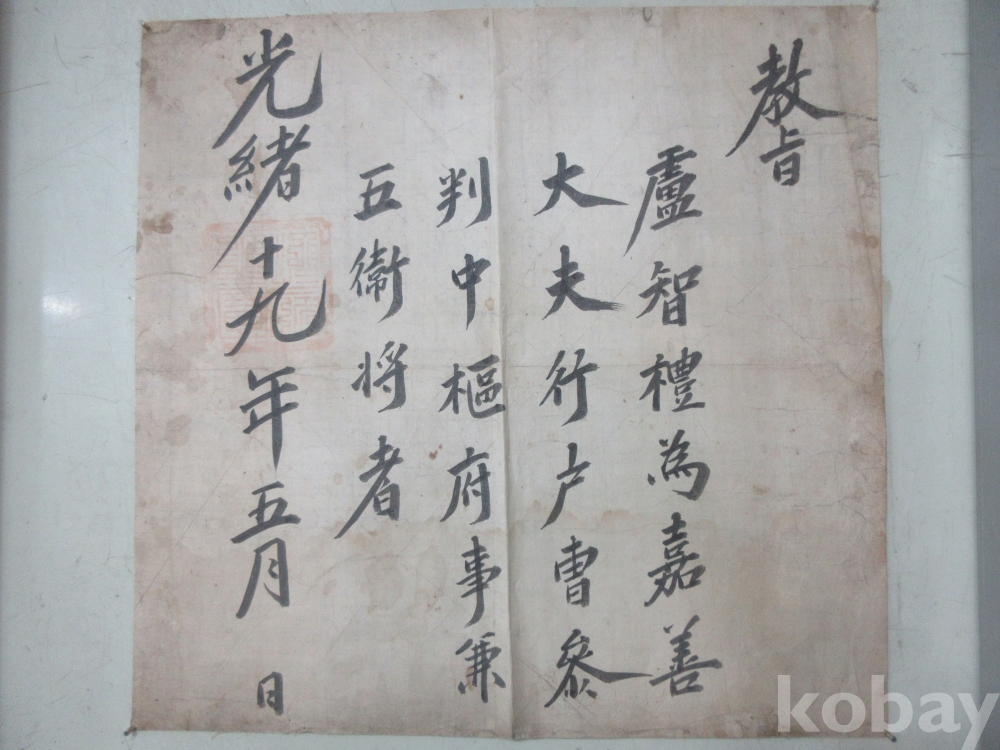 教旨
盧智禮為嘉善
大夫行户曹叅
判中樞府事兼
五衛将者
光緒十九年五月 日
kobay